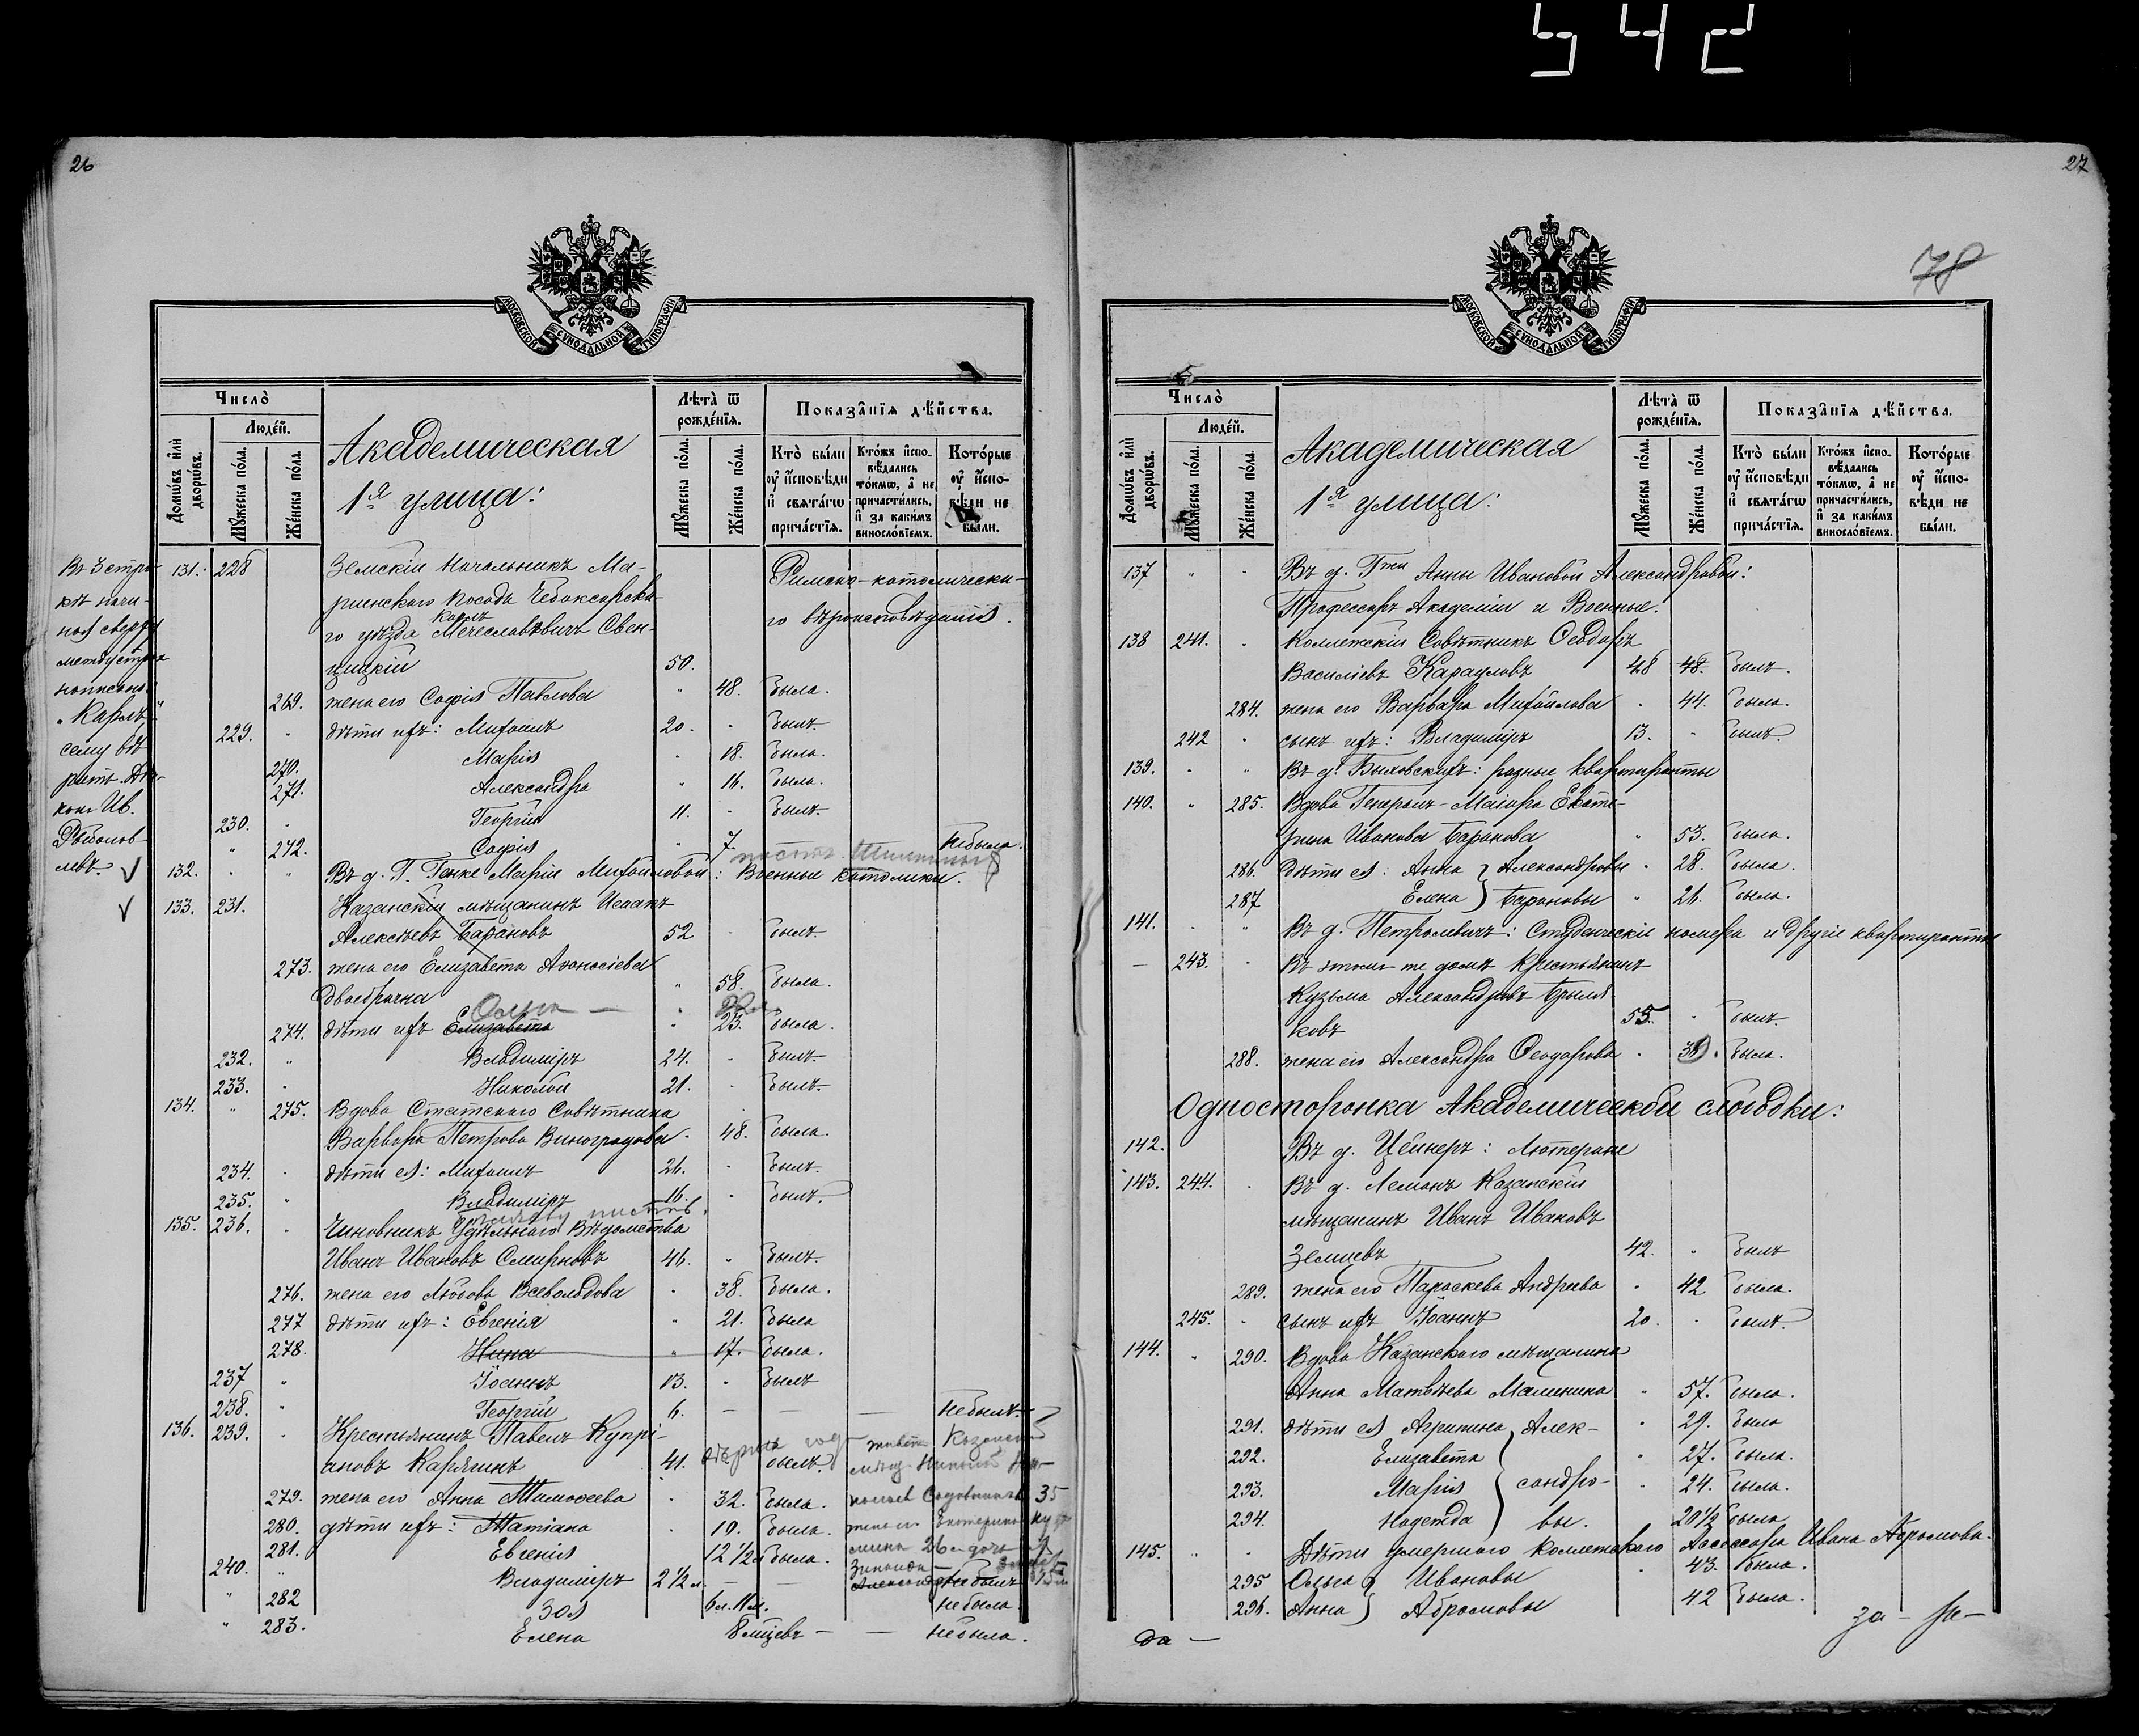 542
26
МОСКОВСКОЙ СѴНОДАЛЬНОЙ ТИПОГРАФІИ
Число̀
Люде́й.
Домѡ́въ и҆лѝ дворѡ́въ.
Мꙋ́жеска по́ла.
Же́нска по́ла.
Академическая
1я улица:
Лѣ́та ѿ рожде́нїя.
Мꙋ́жеска по́ла.
Же́нска по́ла.
Показа̑нїя дѣ́йства.
Кто̀ бы́ли оу҆ и҆́сповѣди и҆ свѧта́гѡ прича́стїя.
Кто́жъ и҆спо­вѣ́дались то́кмѡ, а҆ не причасти́лись, и҆ за каки́мъ винослѡ́вїемъ.
Кото́рые оу҆ и҆спо­вѣди не бы́ли.
Въ 3 строкѣ начиная сверху между строк написано: „Карлъ" сему вѣрить. Ив.
131. 228 Земскій Начальникъ Ма-
ріинскаго Посада Чебоксарска-
го уѣзда Карлъ Мечеславовичъ Свен-
цицкій 50. Римско-католическа-
го вѣроисповѣданія.
269. жена его Софія Павлова " 48. была.
229. " дѣти ихъ: Михаилъ 20. " былъ.
270. Марія " 18. была.
271. Александра " 16. была.
230. " Георгій 11. " былъ.
" 272. Софія " 7. небыла.
132. " " Въ д. Г. Генке Маріи Михайловой: Военные католики.
133. 231. Казанскій мѣщанинъ Исаакъ
Алексѣевъ Барановъ 52 " былъ.
273. жена его Елизавета Аѳанасіева
двоебрачна " 58. была.
Ольга — 22
274. дѣти ихъ Елизавета " 25. была.
232. " Владиміръ 24. " былъ.
233. " Николай 21. " былъ.
134. " 275. Вдова Статскаго Совѣтника
Варвара Петрова Виноградова " 48. была.
234. " дѣти ея: Михаилъ 26. " былъ.
235. " Владиміръ 16. " былъ.
135. 236. " Чиновникъ Удѣльнаго Вѣдомства
Иванъ Ивановъ Смирновъ 46. " былъ.
276. жена его Любовь Всеволодова " 38. была.
277 дѣти ихъ: Евгенія " 21. была
278. Нина " 17. была.
237 " Іоаннъ 13. " былъ
238. " Георгій 6. — — — небылъ.
136. 239. " Крестьянинъ Павелъ Купрі-
ановъ Карягинъ 41. былъ. живетъ Казанскій мѣщ. Николай
279. жена его Анна Тимоѳеева " 32. была. 35
280. дѣти ихъ: Татіана " 10. была. жена его Екатерина
281. Евгенія 12 1/2 была. 26 л. дочь
240. " Владиміръ 2 1/2 л. — — небылъ Зинаида
" 282 Зоя 6 л. 11 м. небыла.
" 283. Елена 8 мѣсцевъ — — небыла.
27
78
МОСКОВСКОЙ СѴНОДАЛЬНОЙ ТИПОГРАФІИ
Число̀
Люде́й.
Домѡ́въ и҆лѝ дворѡ́въ.
Мꙋ́жеска по́ла.
Же́нска по́ла.
Академическая
1я улица:
Лѣ́та ѿ рожде́нїя.
Мꙋ́жеска по́ла.
Же́нска по́ла.
Показа̑нїя дѣ́йства.
Кто̀ бы́ли оу҆ и҆́сповѣди и҆ свѧта́гѡ прича́стїя.
Кто́жъ и҆спо­вѣ́дались то́кмѡ, а҆ не причасти́лись, и҆ за каки́мъ винослѡ́вїемъ.
Кото́рые оу҆ и҆спо­вѣди не бы́ли.
137 " " Въ д. Гжи Анны Ивановой Александровой:
Профессоръ Академіи и Военные.
138 241. " Коллежскій Совѣтникъ Ѳеодоръ
Василіевъ Карауловъ 48 48. былъ.
284. жена его Варвара Михайлова " 44. была.
242 " сынъ ихъ: Владиміръ 13. " былъ.
139. " " Въ д. Быховскихъ: разные квартиранты
140. " 285. Вдова Генералъ-Маіора Екате-
рина Иванова Баранова " 53. была.
286. дѣти ея: Анна } Александровы " 28. была.
287 Елена } Барановы " 26. была.
141. " " Въ д. Петролевичъ: Студенческіе номера и другіе квартиранты
— 243. " Въ этомъ же домѣ крестьянинъ
Кузьма Александровъ Брыля-
ковъ 55. " былъ.
288. жена его Александра Ѳеодорова " 39. была.
Односторонка Академической слободки:
142. Въ д. Цейнеръ: Лютеране
143. 244. " Въ д. Леманъ Казанскій
мѣщанинъ Иванъ Ивановъ
Земцевъ 42. " былъ
289. жена его Параскева Андреева " 42 была.
245. " сынъ ихъ Іоаннъ 20. " былъ.
144. " 290. Вдова Казанскаго мѣщанина
Анна Матвѣева Малинина " 57. была.
291. дѣти ея Агрипина } Алек- " 29. была
292. Елизавета " 27. была.
293. Марія } сандро- " 24. была.
294. Надежда } вы. 20 1/2 была
145. " " Дѣти умершаго Коллежскаго Ассесора Ивана Абрамова.
295 Ольга } Ивановы " 43. была.
296. Анна } Абрамовы 42 была.
да — за — ра —